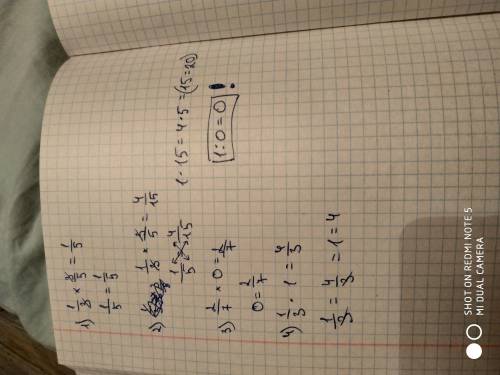 1) 1/3 × 3/5 = 1/5
1/5 = 1/5
2) 1/3 × 3/5 = 4/15
1/5 4/15
1 · 15 = 4 · 5 = (15=20)
3) 2/7 × 0 = 2/7
0 = 2/7
1:0=0 !
4) 1/3 · 1 = 4/3
1/3 = 4/3 = 1 = 4
SHOT ON REDMI NOTE 5
MI DUAL CAMERA